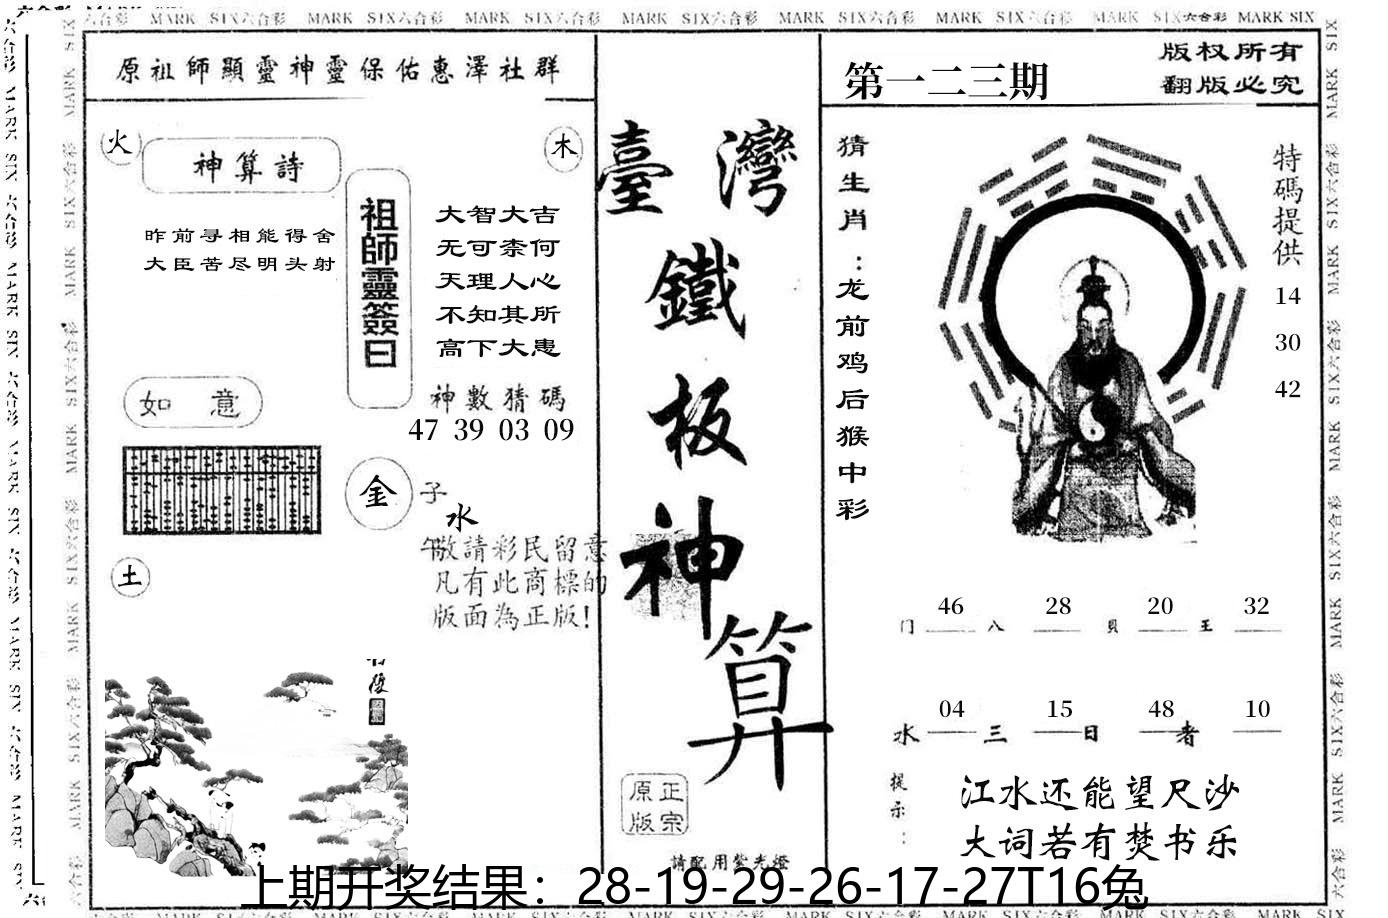 MARK SIX六合彩 MARK SIX六合彩 MARK SIX六合彩 MARK SIX六合彩 MARK SIX六合彩 MARK SIX六合彩 MARK SIX六合彩 MARK SIX
原祖師顯靈神靈保佑惠澤社群
火
神算詩
木
昨前寻相能得舍
大臣苦尽明头射
祖師靈簽曰
大智大吉
无可柰何
天理人心
不知其所
高下大患
如意
神數猜碼
47 39 03 09
金
子
水
午
敬請彩民留意
凡有此商標的
版面為正版!
土
臺灣
鐵
板
神
算
正宗
原版
請配用紫光燈
第一二三期
版权所有
翻版必究
猜生肖:龙前鸡后猴中彩
特碼提供
14
30
42
门 46 八 28 貝 20 王 32
水 04 三 15 日 48 者 10
提示:
江水还能望尺沙
大词若有焚书乐
上期开奖结果：28-19-29-26-17-27T16兔